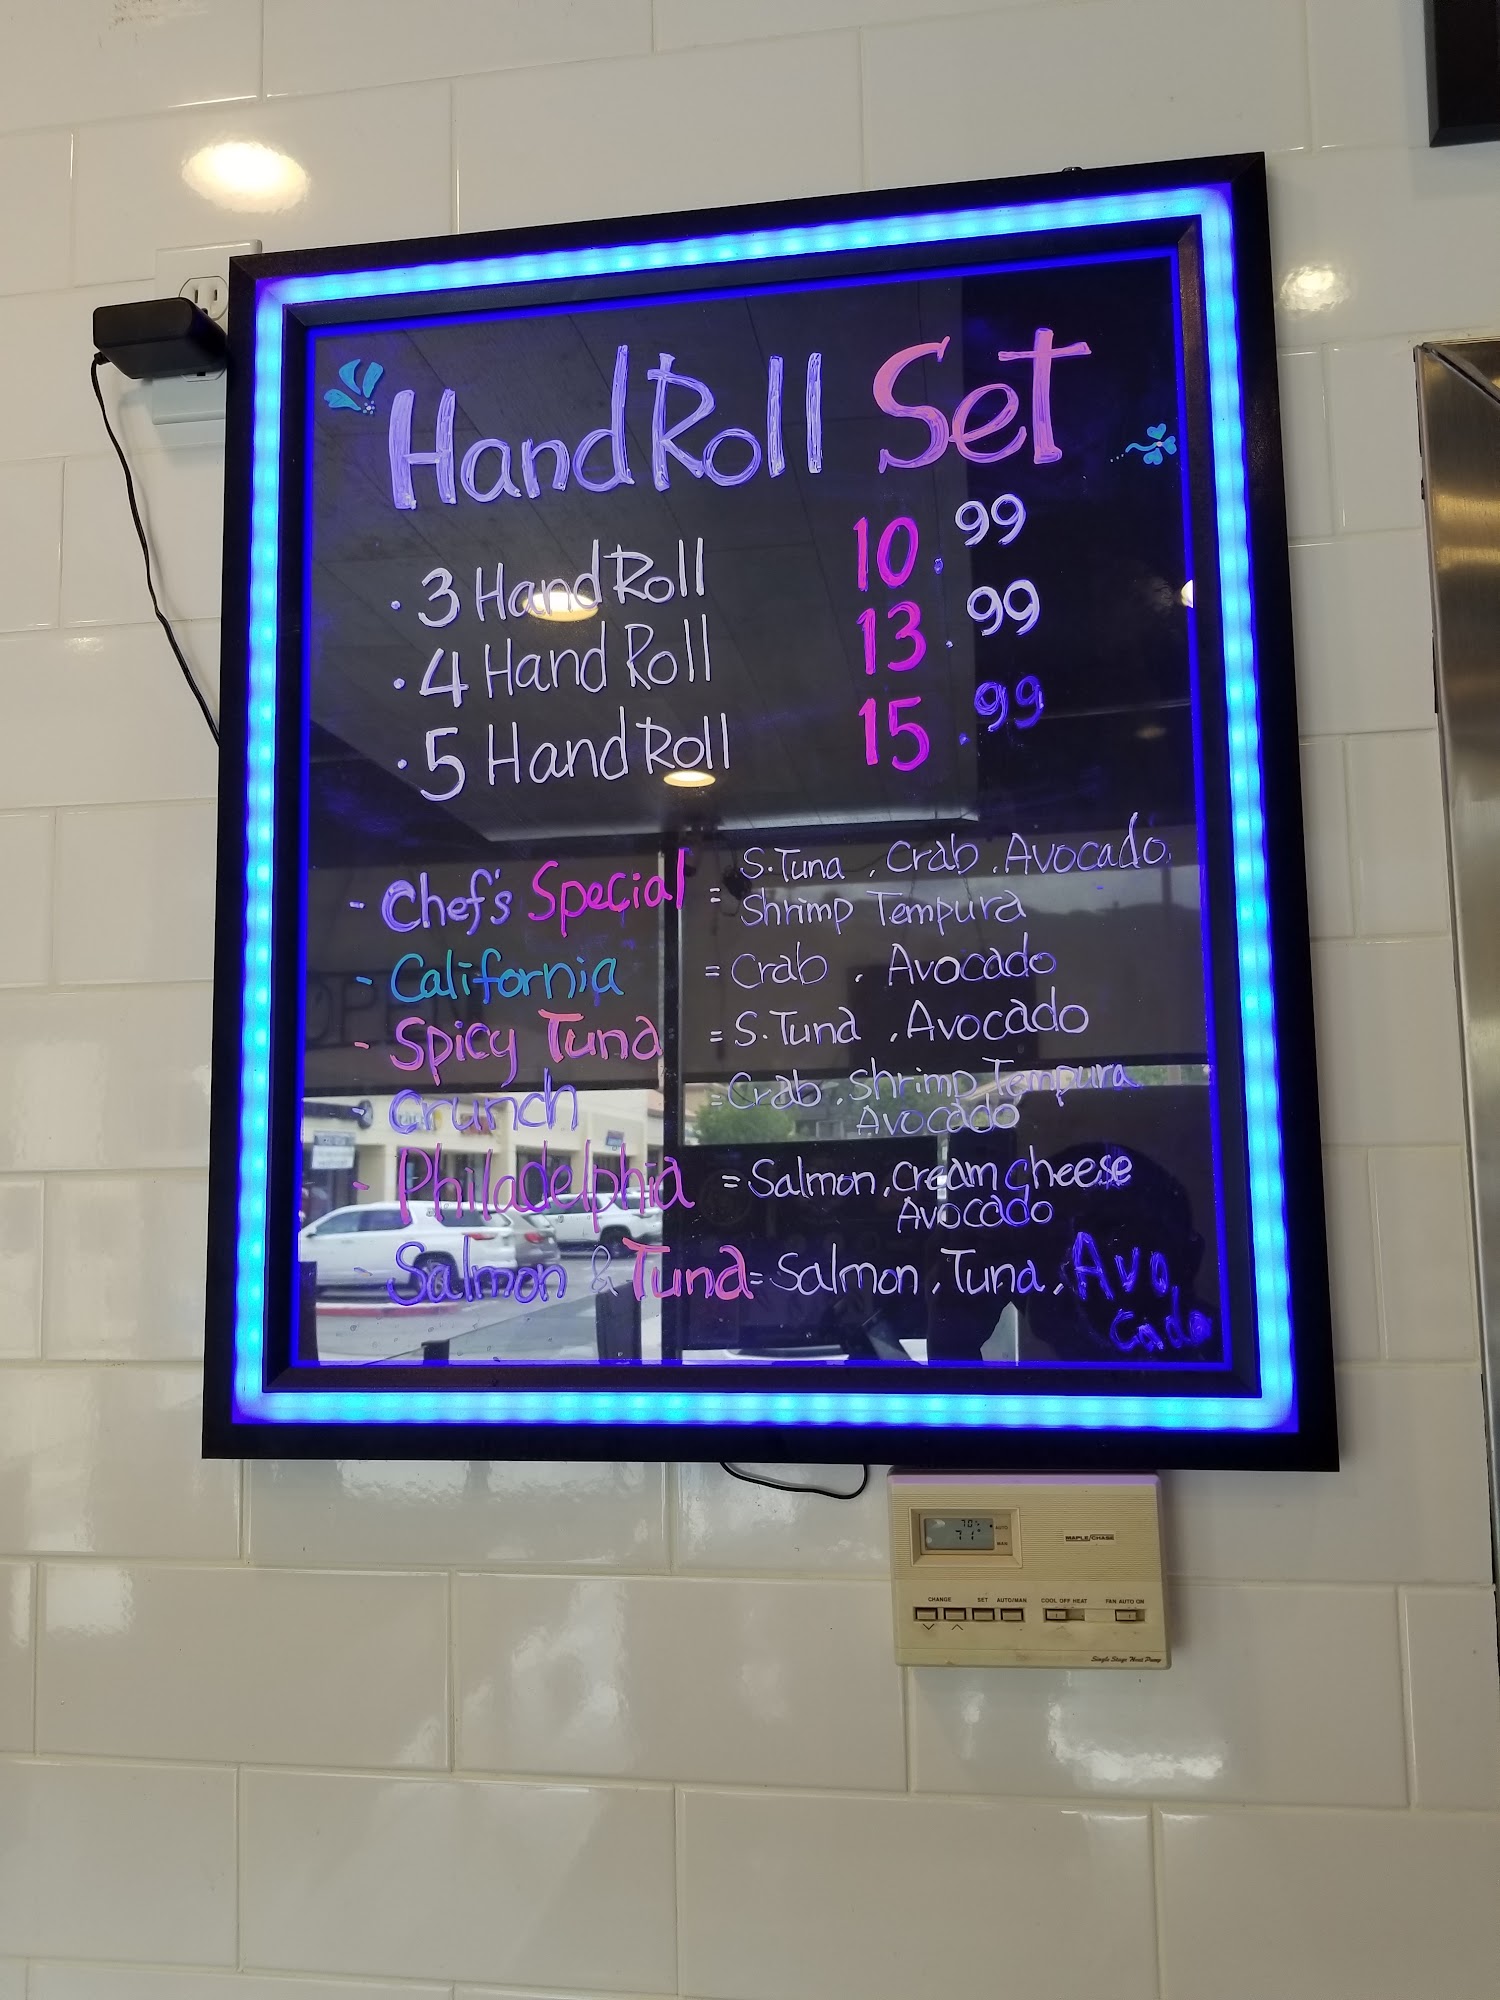 Hand Roll Set
· 3 Hand Roll 10.99
· 4 Hand Roll 13.99
· 5 Hand Roll 15.99
- Chef's Special = S.Tuna, Crab, Avocado,
Shrimp Tempura
- California = Crab, Avocado
- Spicy Tuna = S.Tuna, Avocado
- Crunch = Crab, Shrimp Tempura
Avocado
- Philadelphia = Salmon, Cream Cheese
Avocado
- Salmon & Tuna = Salmon, Tuna, Avo
cado
OPEN
70
71°
AUTO
MAN
MAPLE CHASE
CHANGE SET AUTO/MAN COOL OFF HEAT FAN AUTO ON
Single Stage Heat Pump